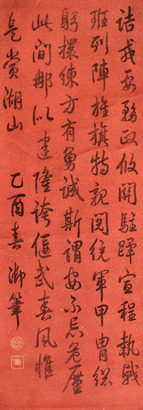 詰戎要務政攸關駐蹕宣程執戟
班列陣旌旗特親閱統軍甲冑總
躬擐練方有勇誠斯謂安不忘危屢
此間那以建隆誇偃武春風惟
是賞湖山
乙酉春御筆